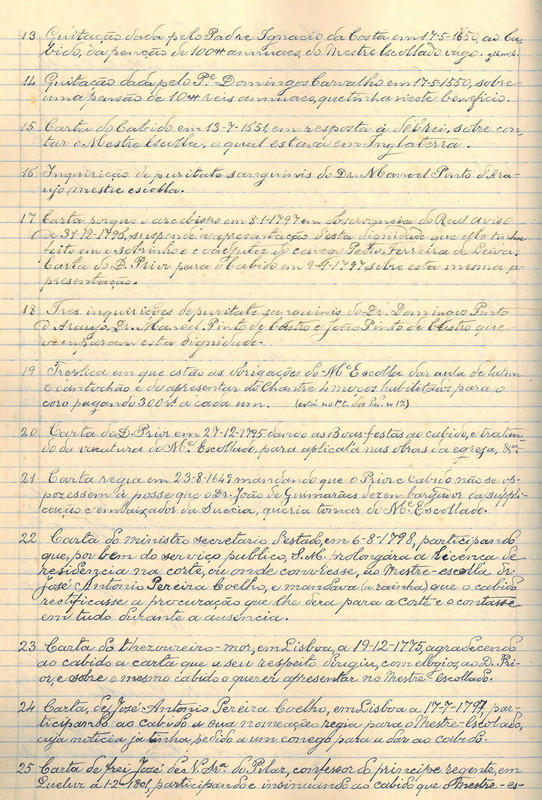 13 Quitação dada pelo Padre Ignacio da Costa em 17-5-1650, ao Ca-
bido, da penção de 100# annuaes, do Mestre Escollado vago.
14 Quitação dada pelo P.e Domingos Carvalho em 17-5-1550, sobre
uma pensão de 10# reis annuaes, que tinha neste beneficio.
15 Carta do Cabido em 13-7-1551, em resposta à d'Elrei, sobre con-
tar o Mestre Escolla, o qual estava em Inglaterra.
16 Inquirição de puritate sanguinis do Dr. Manoel Pinto d'Arau-
jo mestre escolla.
17 Carta porque o arcebispo em 8-1-1797 em observancia do Real aviso
de 31-12-1796, suspende a apresentação d'esta dignidade que elle tinha
feito em sobrinho e coadjutor do conego Pedro Ferreira de Leiva.
Carta do D. Prior para o Cabido em 9-4-1797 sobre esta mesma a-
presentação.
18 Tres inquirições de puritate sanguinis do Dr. Domingos Pinto
d'Araujo, Dr. Manoel Pinto de Castro e João Pinto de Castro que
occuparam esta dignidade.
19 em que estão as obrigações do M.e Escolla dar aula de latim
e cantochão e de apresentar ao Chantre 4 moços habilitados para o
coro pagando 320 a cada um.
20 Carta do D. Prior em 27-12-1795 dando as Boas festas ao cabido, e tratan-
do da vacatura do M.e Escollado, para aplical'a nas obras da egreja, &.a
21 Carta regia em 23-8-1649 mandando que o Prior e Cabido não se op-
pozessem á posse que o Dr. João de Guimarães dezembargador da suppli-
cação e embaixador da Suecia, queria tomar do M.e Escollado.
22 Carta do ministro secretario d'estado, em 6-8-1798, participando
que, por bem do serviço publico, S.M. prolongára a licença de
residencia na corte, ou onde conviesse, ao Mestre-escolla Dr.
José Antonio Pereira Coelho, e mandava (a rainha) que o cabido
rectificasse a procuração que lhe dera para a corte e o contasse
em tudo durante a ausencia.
23 Carta do thezoureiro-mor, em Lisboa, a 19-12-1775, agradecendo
ao cabido a carta que a seu respeito dirigiu, com elogios, ao D. Pri-
or, e sobre o mesmo cabido o querer apresentar no Mestre-Escolado.
24 Carta, de José Antonio Pereira Coelho, em Lisboa a 17-7-1797, par-
ticipando ao cabido a sua nomeação regia para o Mestre-Escolado,
cuja noticia já tinha pedido a um conego para a dar ao cabido.
25 Carta de frei José de N. Sr.a do Pilar, confessor do principe regente, em
Queluz a 1-2-1801, participando e insinuando ao cabido que o mestre-es-